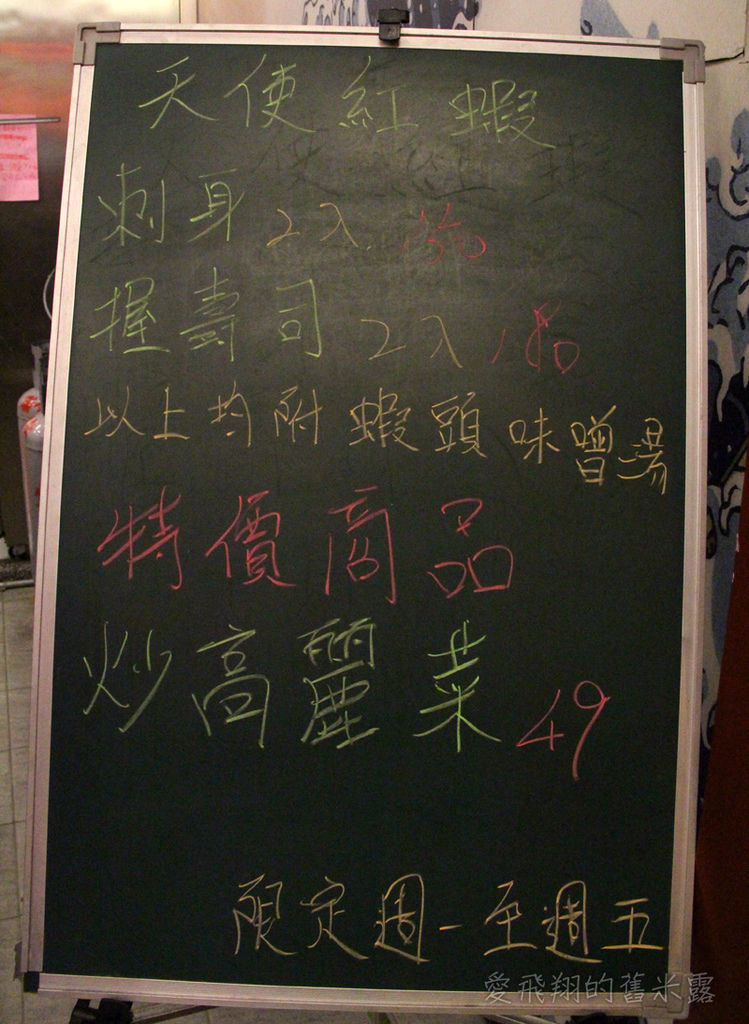 天使紅蝦
刺身 2入 150
握壽司 2入 180
以上均附蝦頭味噌湯
特價商品
炒高麗菜 49
限定週一至週五
愛飛翔的舊米露